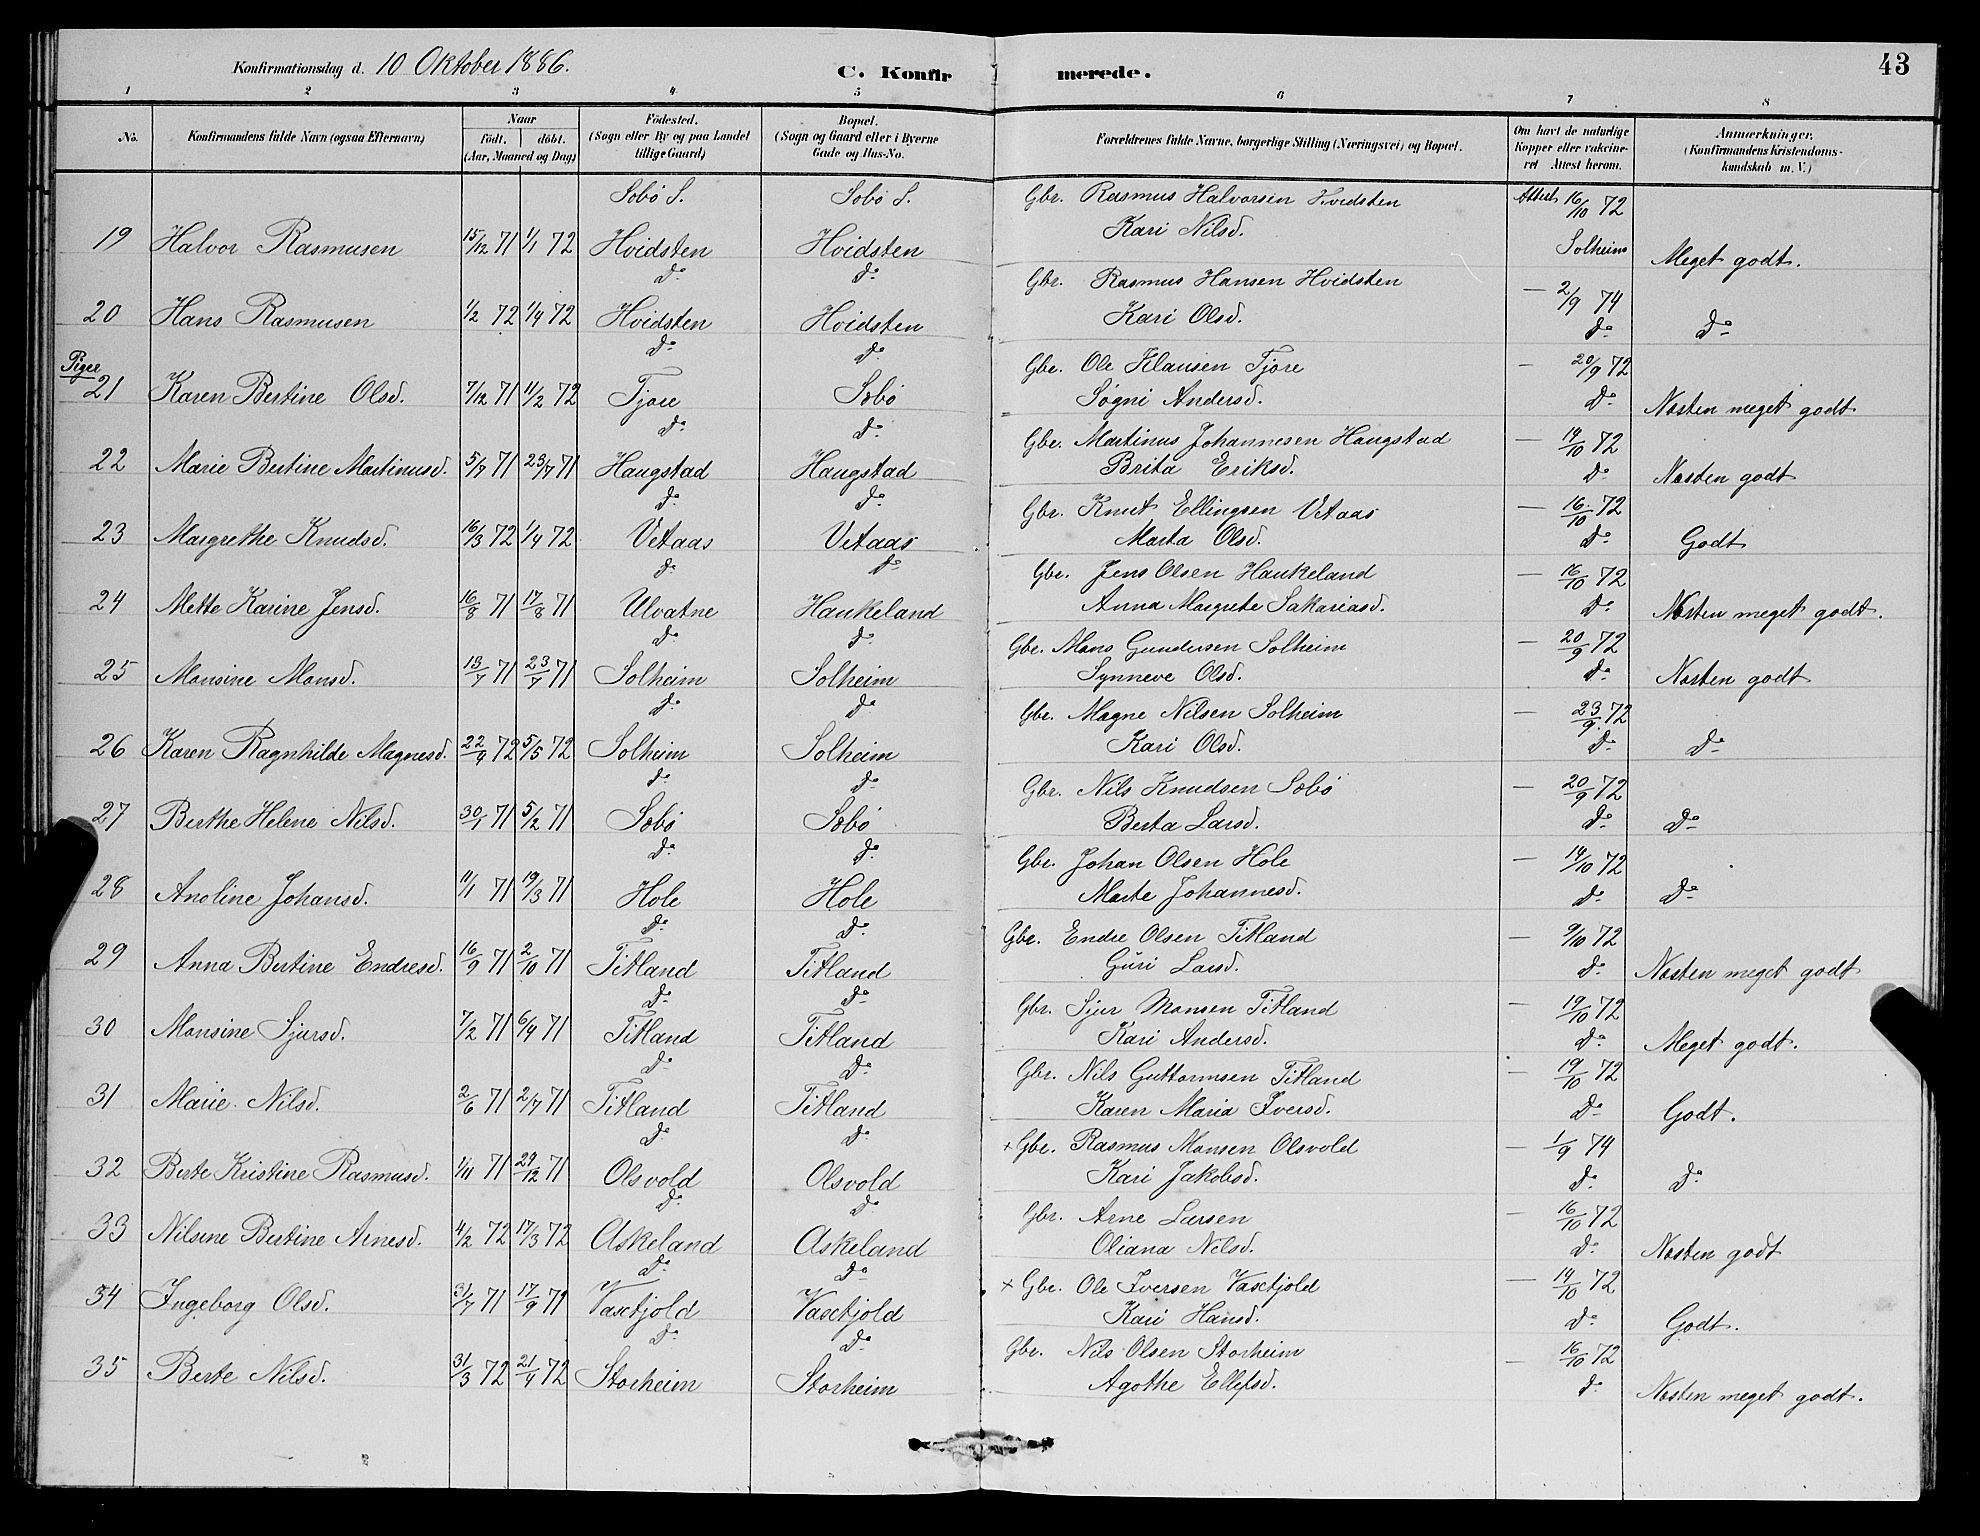 Konfirmationsdag d. 10 Oktober 1886. C. Konfirmerede. 43
1 2 3 4 5 6 7 8
No. Konfirmandens fulde Navn (ogsaa Efternavn) Naar født. døbt. (Aar, Maaned og Dag) Fødested. (Sogn eller By og paa Landet tillige Gaard) Bopæl. (Sogn og Gaard eller i Byerne Gade og Hus-No. Forældrenes fulde Navne, borgerlige Stilling (Næringsvei) og Bopæl. Om havt de naturlige Kopper eller vakcineret Attest herom. Anmærkninger, (Konfirmandens Kristendomskundskab m. V.)
Sæbø S. Sæbø S. Gbr. Rasmus Halvorsen Hvidsten Attest 16/10 72
19 Halvor Rasmusen 15/12 71 1/1 72 Hvidsten Hvidsten Kari Nilsd. Solheim Meget godt.
do do Gbr. Rasmus Hansen Hvidsten — 2/9 74
20 Hans Rasmusen 1/2 72 1/4 72 Hvidsten Hvidsten Kari Olsd. do do
Piger
do do Gbr. Ole Klausen Tjore — 20/9 72
21 Karen Bertine Olsd. 7/12 71 11/2 72 Tjore Sæbø Søgni Andersd. do Næsten meget godt
do do Gbr. Martinus Johannesen Haugstad — 14/10 72
22 Marie Bertine Martinusd. 5/7 71 23/7 71 Haugstad Haugstad Brita Eriksd. do Næsten godt
do do Gbr. Knut Ellingsen Vetaas — 16/10 72
23 Margrethe Knudsd. 16/3 72 1/4 72 Vetaas Vetaas Marta Olsd. do Godt
do do Gbr. Jens Olsen Haukeland — 16/10 72
24 Mette Karine Jensd. 16/8 71 17/8 71 Ulvatne Haukeland Anna Margrete Sakariasd. do Næsten meget godt.
do do Gbr. Mons Gundersen Solheim — 20/9 72
25 Monsine Monsd. 13/7 71 23/7 71 Solheim Solheim Synneve Olsd. do Næsten godt
do do Gbr. Magne Nilsen Solheim — 23/9 72
26 Karen Ragnhilde Magnesd. 22/4 72 5/5 72 Solheim Solheim Kari Olsd. do do
do do Gbr. Nils Knudsen Sæbø — 20/9 72
27 Berthe Helene Nilsd. 30/1 71 5/2 71 Sæbø Sæbø Berta Larsd. do do
do do Gbr. Johan Olsen Hole — 14/10 72
28 Anoline Johansd. 11/1 71 19/3 71 Hole Hole Marte Johannesd. do do
do do Gbr. Endre Olsen Titland — 9/10 72
29 Anna Bertine Endresd. 16/9 71 2/10 71 Titland Titland Guri Larsd. do Næsten meget godt
do do Gbr. Sjur Monsen Titland — 19/10 72
30 Monsine Sjursd. 7/2 71 6/4 71 Titland Titland Kari Andersd. do Meget godt.
do do Gbr. Nils Guttormsen Titland — 19/10 72
31 Marie Nilsd. 2/6 71 2/7 71 Titland Titland Karen Maria Iversd. do Godt.
do do × Gbr. Rasmus Monsen Olsvold — 1/9 74
32 Berte Kristine Rasmusd. 1/11 71 24/12 71 Olsvold Olsvold Kari Jakobsd. do do
do do Gbr. Arne Larsen — 16/10 72
33 Nilsine Bertine Arnesd. 4/2 72 17/3 72 Askeland Askeland Oliana Nilsd. do Næsten godt
do do × Gbr. Ole Iversen Vaxtjold — 14/10 72
34 Ingeborg Olsd. 31/7 71 17/9 71 Vaxtjold Vaxtjold Kari Hansd. do Godt.
do do Gbr. Nils Olsen Storheim — 16/10 72
35 Berte Nilsd. 31/3 72 21/4 72 Storheim Storheim Agothe Ellefsd. do Næsten meget godt.